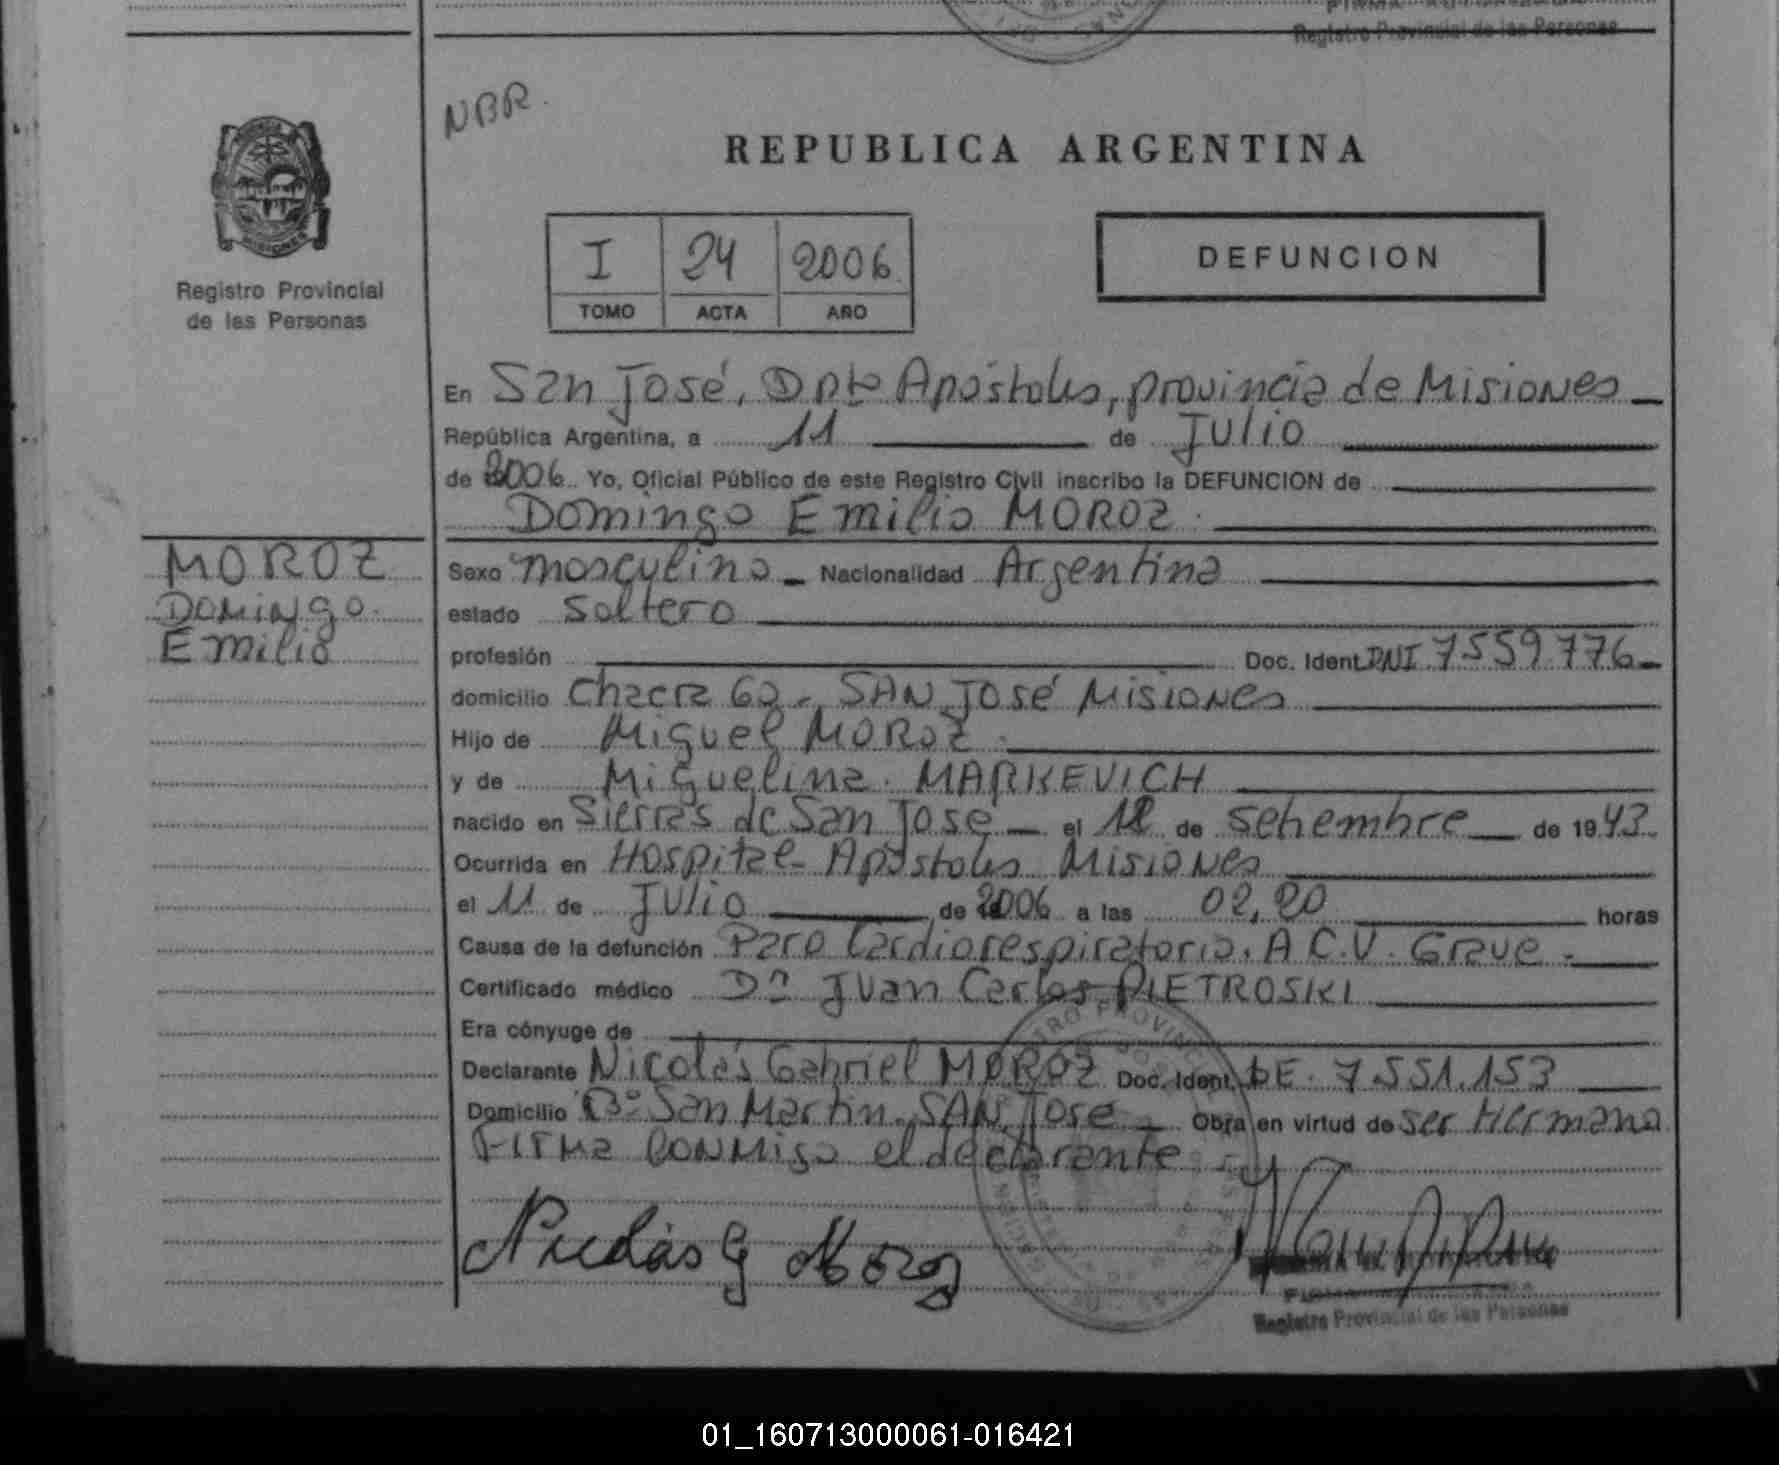 Registro Provincial de las Personas
NBR.
REPUBLICA ARGENTINA
PROVINCIA
MISIONES
Registro Provincial
de las Personas
I 24 2006
TOMO ACTA AÑO
DEFUNCION
En San José, Dpto Apóstoles, provincia de Misiones
República Argentina, a 11 de Julio
de 2006. Yo, Oficial Público de este Registro Civil inscribo la DEFUNCION de
Domingo Emilio MOROZ.
MOROZ
Domingo
Emilio
Sexo masculino Nacionalidad Argentina
estado Soltero
profesión Doc. Ident. DNI 7559.776
domicilio Chacra 62 - SAN José Misiones
Hijo de Miguel MOROZ.
y de Miguelina MARKEVICH
nacido en Sierras de San José el 12 de setiembre de 1943.
Ocurrida en Hospital - Apóstoles Misiones
el 11 de Julio de 2006 a las 02,20 horas
Causa de la defunción Paro Cardiorespiratorio. A.C.V. Grave.
Certificado médico Dr Juan Carlos PIETROSKI
Era cónyuge de
Declarante Nicolás Gabriel MOROZ Doc. Ident. DE. 7.551.153
Domicilio B° San Martin - SAN José Obra en virtud de ser Hermano
Firma conmigo el declarante
Nicolás G Moroz
Registro Provincial de las Personas
01_160713000061-016421